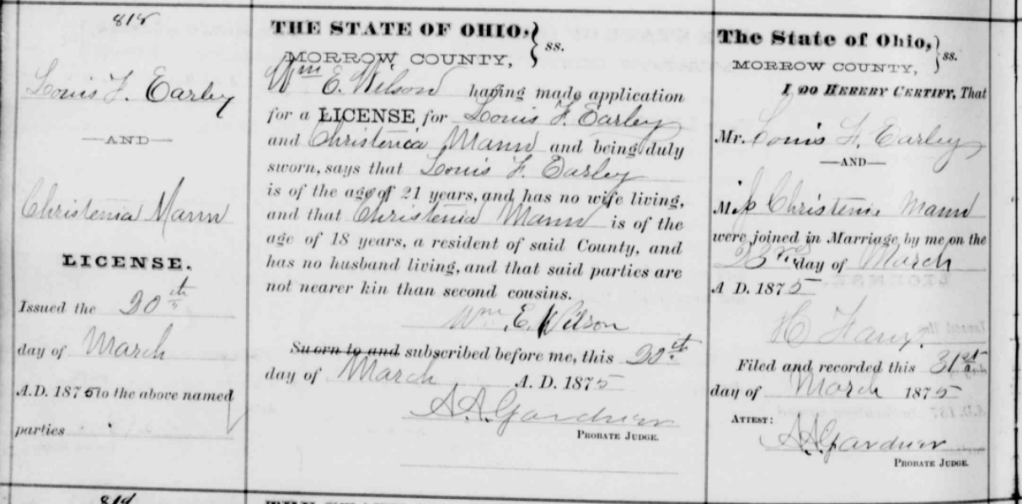 818
Louis F. Earley
—AND—
Christenia Mann
LICENSE.
Issued the 20th
day of March
A.D. 1875 to the above named
parties
THE STATE OF OHIO,
MORROW COUNTY, } ss.
Wm E. Wilson having made application
for a LICENSE for Louis F. Earley
and Christenia Mann and being duly
sworn, says that Louis F. Earley
is of the age of 21 years, and has no wife living,
and that Christenia Mann is of the
age of 18 years, a resident of said County, and
has no husband living, and that said parties are
not nearer kin than second cousins.
Wm. E. Wilson
Sworn to and subscribed before me, this 20th
day of March A. D. 1875
A A Gardner
PROBATE JUDGE.
The State of Ohio,
MORROW COUNTY, } ss.
I DO HEREBY CERTIFY, That
Mr. Louis F. Earley
—AND—
Miss Christenia Mann
were joined in Marriage by me on the
day of March
A D. 1875
Filed and recorded this 31st
day of March 1875
ATTEST:
A A Gardner
PROBATE JUDGE.
819